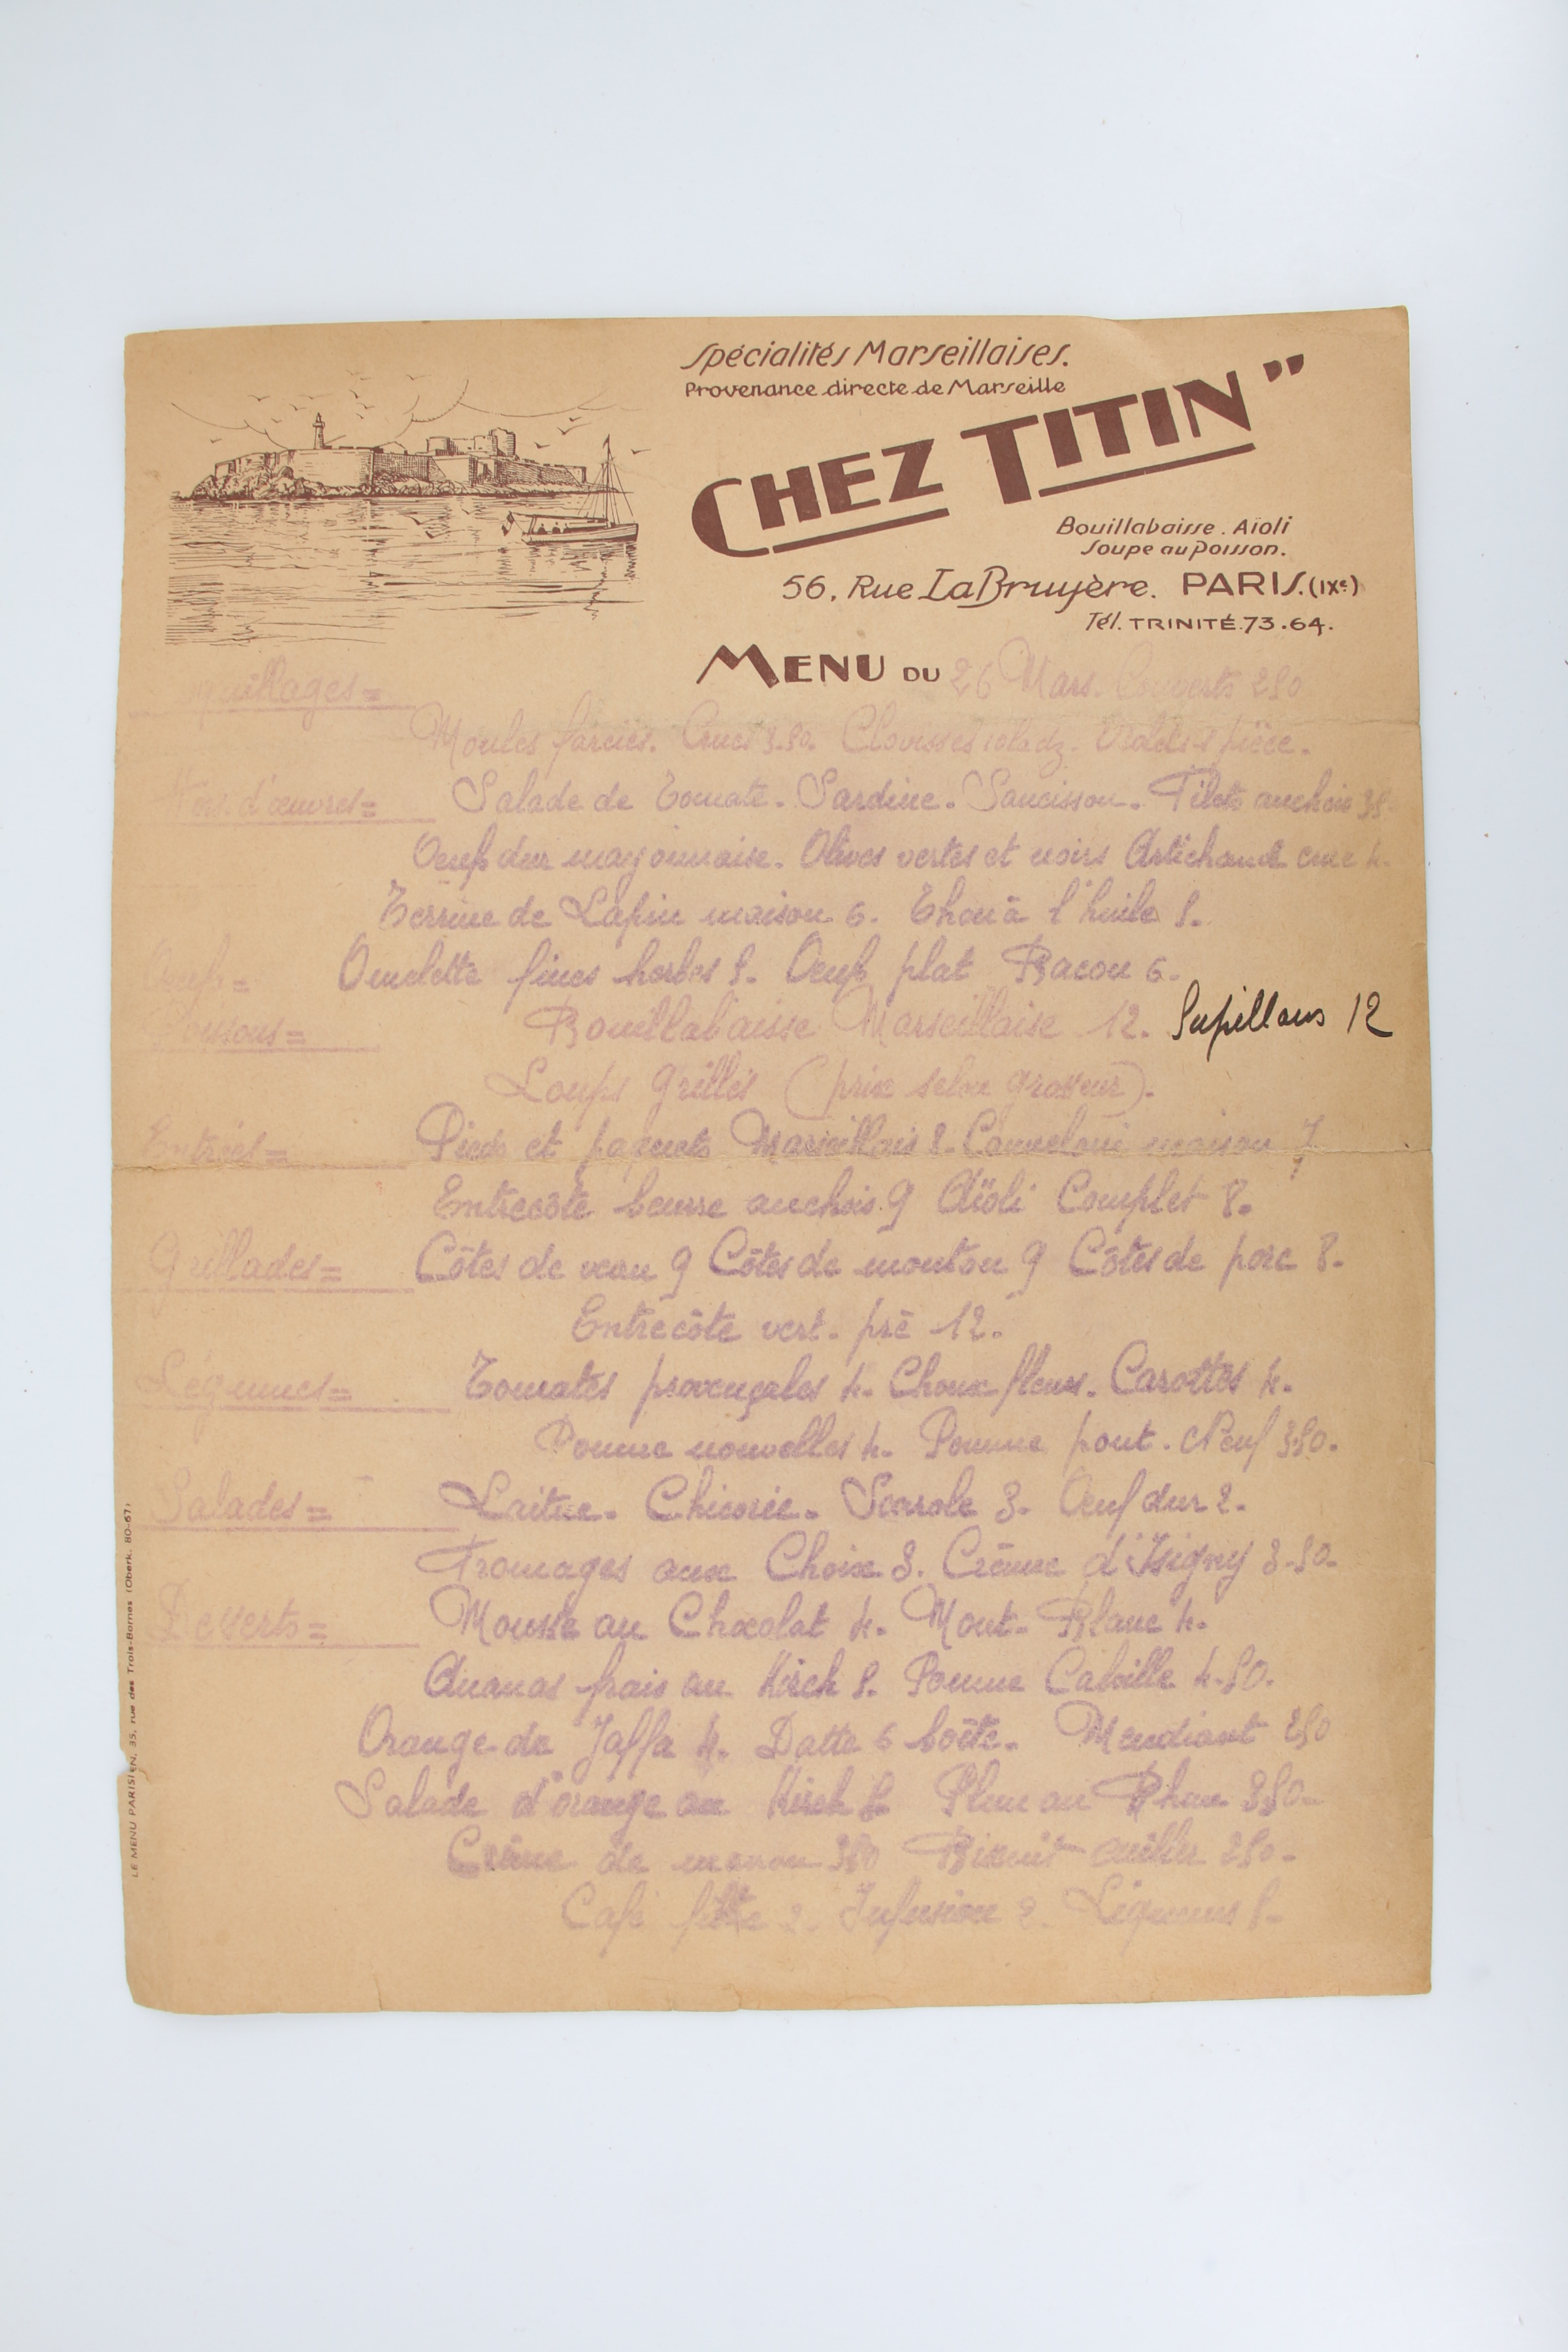 Spécialités Marseillaises.
Provenance directe de Marseille
CHEZ TITIN"
Bouillabaisse. Aïoli
Soupe au Poisson.
56, Rue La Bruyère. PARIS. (IXe)
Tél. TRINITÉ 73.64.
MENU DU 26 Mars. Couverts 250
quillages =
Moules farcies. Crues 3.50. Clovisses 10 la dz. Violets pièce.
Hors. d'œuvres = Salade de Tomate. Sardine. Saucisson. Filets anchois
Oeufs dur mayonnaise. Olives vertes et noirs Artichaud crue 4.
Terrine de Lapin maison 6. Thon à l'huile 5.
Oeufs = Omelette fines herbes 5. Oeufs plat Bacon 6.
Poissons = Bouillabaisse Marseillaise 12. Supillons 12
Loups Grillés (prix selon grosseur).
Entrées = Pieds et paquets Marseillais 8. Canneloni maison 7
Entrecôte beurre anchois 9 Aïoli Complet 8.
Grillades = Côtes de veau 9 Côtes de mouton 9 Côtes de porc 8.
Entrecôte vert. pré 12.
Légumes = Tomates provençales 4. Choux fleurs. Carottes 4.
Pomme nouvelles 4. Pomme pont. Neuf 3.50.
Salades = Laitue. Chicorée. Scarole 3. Oeuf dur 2.
Fromages aux Choix 3. Crème d'Isigny 3.50.
Desserts = Mousse au Chocolat 4. Mont. Blanc 4.
Ananas frais au Kirch 5. Pomme Calville 4.50.
Orange de Jaffa 4. Datte 6 boîte. Mendiant 250
Salade d'orange au Kirch 5 Plum au Rhum 350.
Crème de marron 350 Biscuit cuiller 250.
Café filtre 2. Infusion 2. Liqueurs 5.
LE MENU PARISIEN, 35, rue des Trois-Bornes (Oberk. 80-67)